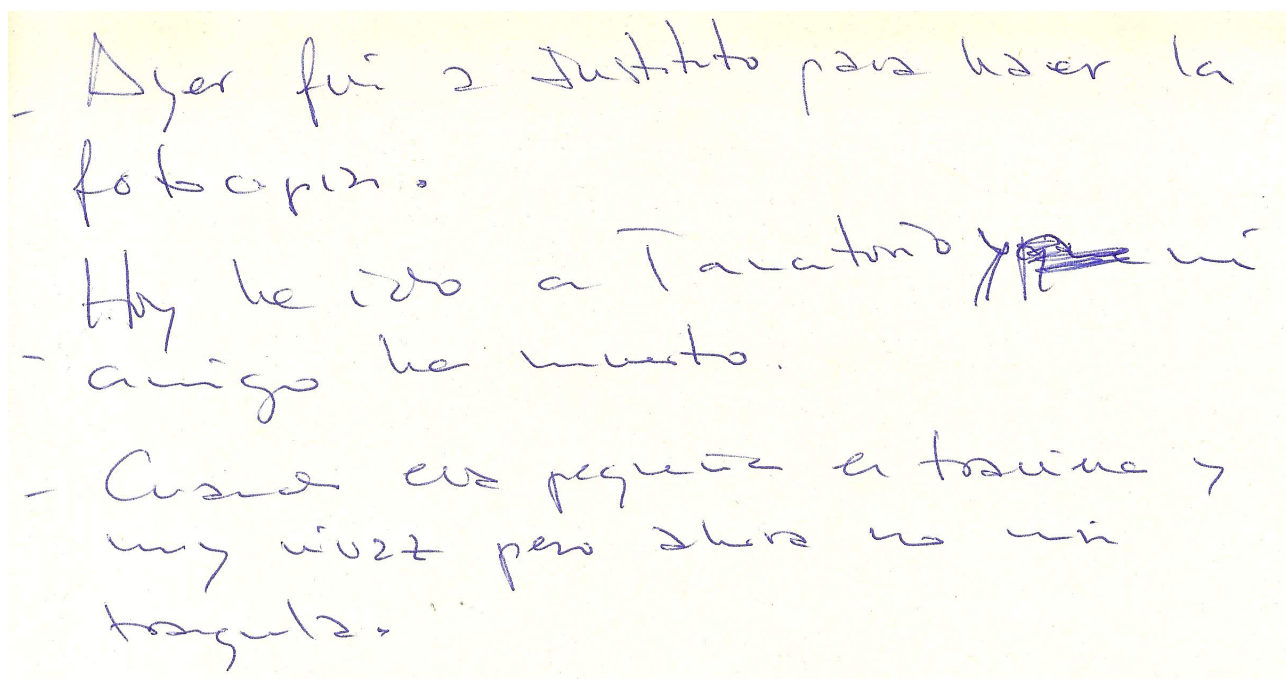 - Ayer fui a Instituto para hacer la
fotocopia.
Hoy he ido a Tanatorio y mi
- amigo ha muerto.
- Cuando era pequeña er traviesa y
muy vivaz pero ahora no